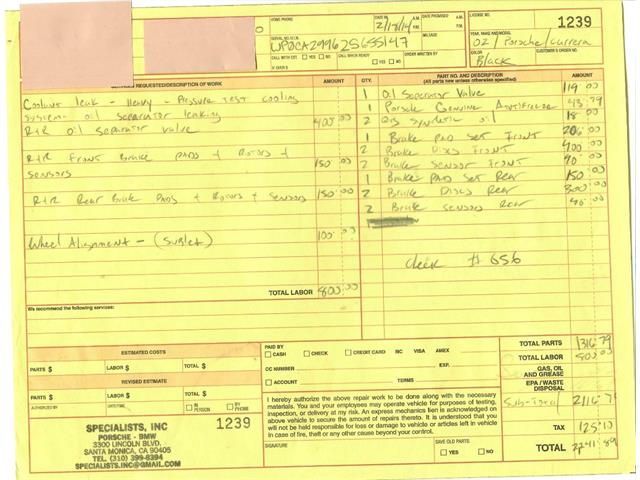 HOME PHONE
DATE IN 2/18/14 A.M. P.M. DATE PROMISED A.M. P.M.
LICENSE NO.
1239
SERIAL NO./V.I.N. WP0CA2996 2S655147
MILEAGE
YEAR, MAKE AND MODEL
02/Porsche/Carrera
CALL WITH EST. YES NO CALL WHEN READY YES NO ORDER WRITTEN BY
COLOR Black CUSTOMER'S ORDER NO.
REQUESTED/DESCRIPTION OF WORK AMOUNT
Coolant leak - Heavy - Pressure test cooling
system - oil separator leaking
R+R oil separator valve 400 00
R+R Front Brake pads + Rotors +
sensors 150 00
R+R Rear Brake Pads + Rotors + Sensors 150 00
Wheel Alignment - (Sublet) 100 00
TOTAL LABOR 800 00
QTY. PART NO. AND DESCRIPTION AMOUNT
(All parts new unless otherwise specified)
1 Oil Seperator Valve 119 00
1 Porsche Genuine Antifreeze 43 79
2 synthetic oil 18 00
1 Brake pad set Front 206 00
2 Brake Discs Front 400 00
2 Brake Sensor Front 40 00
1 Brake Pads set Rear 150 00
2 Brake Discs Rear 300 00
2 Brake sensors Rear 40 00
check # 656
We recommend the following services:
ESTIMATED COSTS
PARTS $ LABOR $ TOTAL $
REVISED ESTIMATE
PARTS $ LABOR $ TOTAL $
AUTHORIZED BY DATE/TIME IN PERSON BY PHONE
SPECIALISTS, INC
PORSCHE - BMW
3300 LINCOLN BLVD.
SANTA MONICA, CA 90405
TEL. (310) 399-8394
SPECIALISTS.INC@GMAIL.COM
1239
PAID BY
CASH CHECK CREDIT CARD M/C VISA AMEX
CC NUMBER EXP.
ACCOUNT TERMS
I hereby authorize the above repair work to be done along with the necessary
materials. You and your employees may operate vehicle for purposes of testing,
inspection, or delivery at my risk. An express mechanics lien is acknowledged on
above vehicle to secure the amount of repairs thereto. It is understood that you
will not be held responsible for loss or damage to vehicle or articles left in vehicle
in case of fire, theft or any other cause beyond your control.
SIGNATURE
SAVE OLD PARTS
YES NO
TOTAL PARTS 1316 79
TOTAL LABOR 800 00
GAS, OIL
AND GREASE
EPA / WASTE
DISPOSAL
Sub-Total 2116 79
TAX 125 10
TOTAL 2241 89